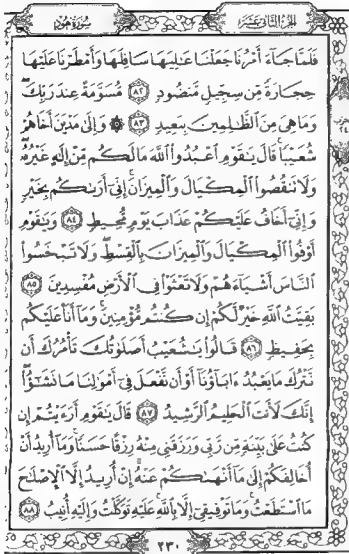 الجزء الثاني عشر
سورة هود
فَلَمَّا جَآءَ أَمْرُنَا جَعَلْنَا عَٰلِيَهَا سَافِلَهَا وَأَمْطَرْنَا عَلَيْهَا
حِجَارَةً مِّن سِجِّيلٍ مَّنضُودٍ ٨٢ مُّسَوَّمَةً عِندَ رَبِّكَ ۖ
وَمَا هِىَ مِنَ ٱلظَّٰلِمِينَ بِبَعِيدٍ ٨٣ ۞ وَإِلَىٰ مَدْيَنَ أَخَاهُمْ
شُعَيْبًا ۚ قَالَ يَٰقَوْمِ ٱعْبُدُوا۟ ٱللَّهَ مَا لَكُم مِّنْ إِلَٰهٍ غَيْرُهُۥ ۖ
وَلَا تَنقُصُوا۟ ٱلْمِكْيَالَ وَٱلْمِيزَانَ ۚ إِنِّىٓ أَرَىٰكُم بِخَيْرٍ
وَإِنِّىٓ أَخَافُ عَلَيْكُمْ عَذَابَ يَوْمٍ مُّحِيطٍ ٨٤ وَيَٰقَوْمِ
أَوْفُوا۟ ٱلْمِكْيَالَ وَٱلْمِيزَانَ بِٱلْقِسْطِ ۖ وَلَا تَبْخَسُوا۟
ٱلنَّاسَ أَشْيَآءَهُمْ وَلَا تَعْثَوْا۟ فِى ٱلْأَرْضِ مُفْسِدِينَ ٨٥
بَقِيَّتُ ٱللَّهِ خَيْرٌ لَّكُمْ إِن كُنتُم مُّؤْمِنِينَ ۚ وَمَآ أَنَا۠ عَلَيْكُم
بِحَفِيظٍ ٨٦ قَالُوا۟ يَٰشُعَيْبُ أَصَلَوٰتُكَ تَأْمُرُكَ أَن
نَّتْرُكَ مَا يَعْبُدُ ءَابَآؤُنَآ أَوْ أَن نَّفْعَلَ فِىٓ أَمْوَٰلِنَا مَا نَشَٰٓؤُا۟ ۖ
إِنَّكَ لَأَنتَ ٱلْحَلِيمُ ٱلرَّشِيدُ ٨٧ قَالَ يَٰقَوْمِ أَرَءَيْتُمْ إِن
كُنتُ عَلَىٰ بَيِّنَةٍ مِّن رَّبِّى وَرَزَقَنِى مِنْهُ رِزْقًا حَسَنًا ۚ وَمَآ أُرِيدُ أَنْ
أُخَالِفَكُمْ إِلَىٰ مَآ أَنْهَىٰكُمْ عَنْهُ ۚ إِنْ أُرِيدُ إِلَّا ٱلْإِصْلَٰحَ
مَا ٱسْتَطَعْتُ ۚ وَمَا تَوْفِيقِىٓ إِلَّا بِٱللَّهِ ۚ عَلَيْهِ تَوَكَّلْتُ وَإِلَيْهِ أُنِيبُ ٨٨
٢٣٠